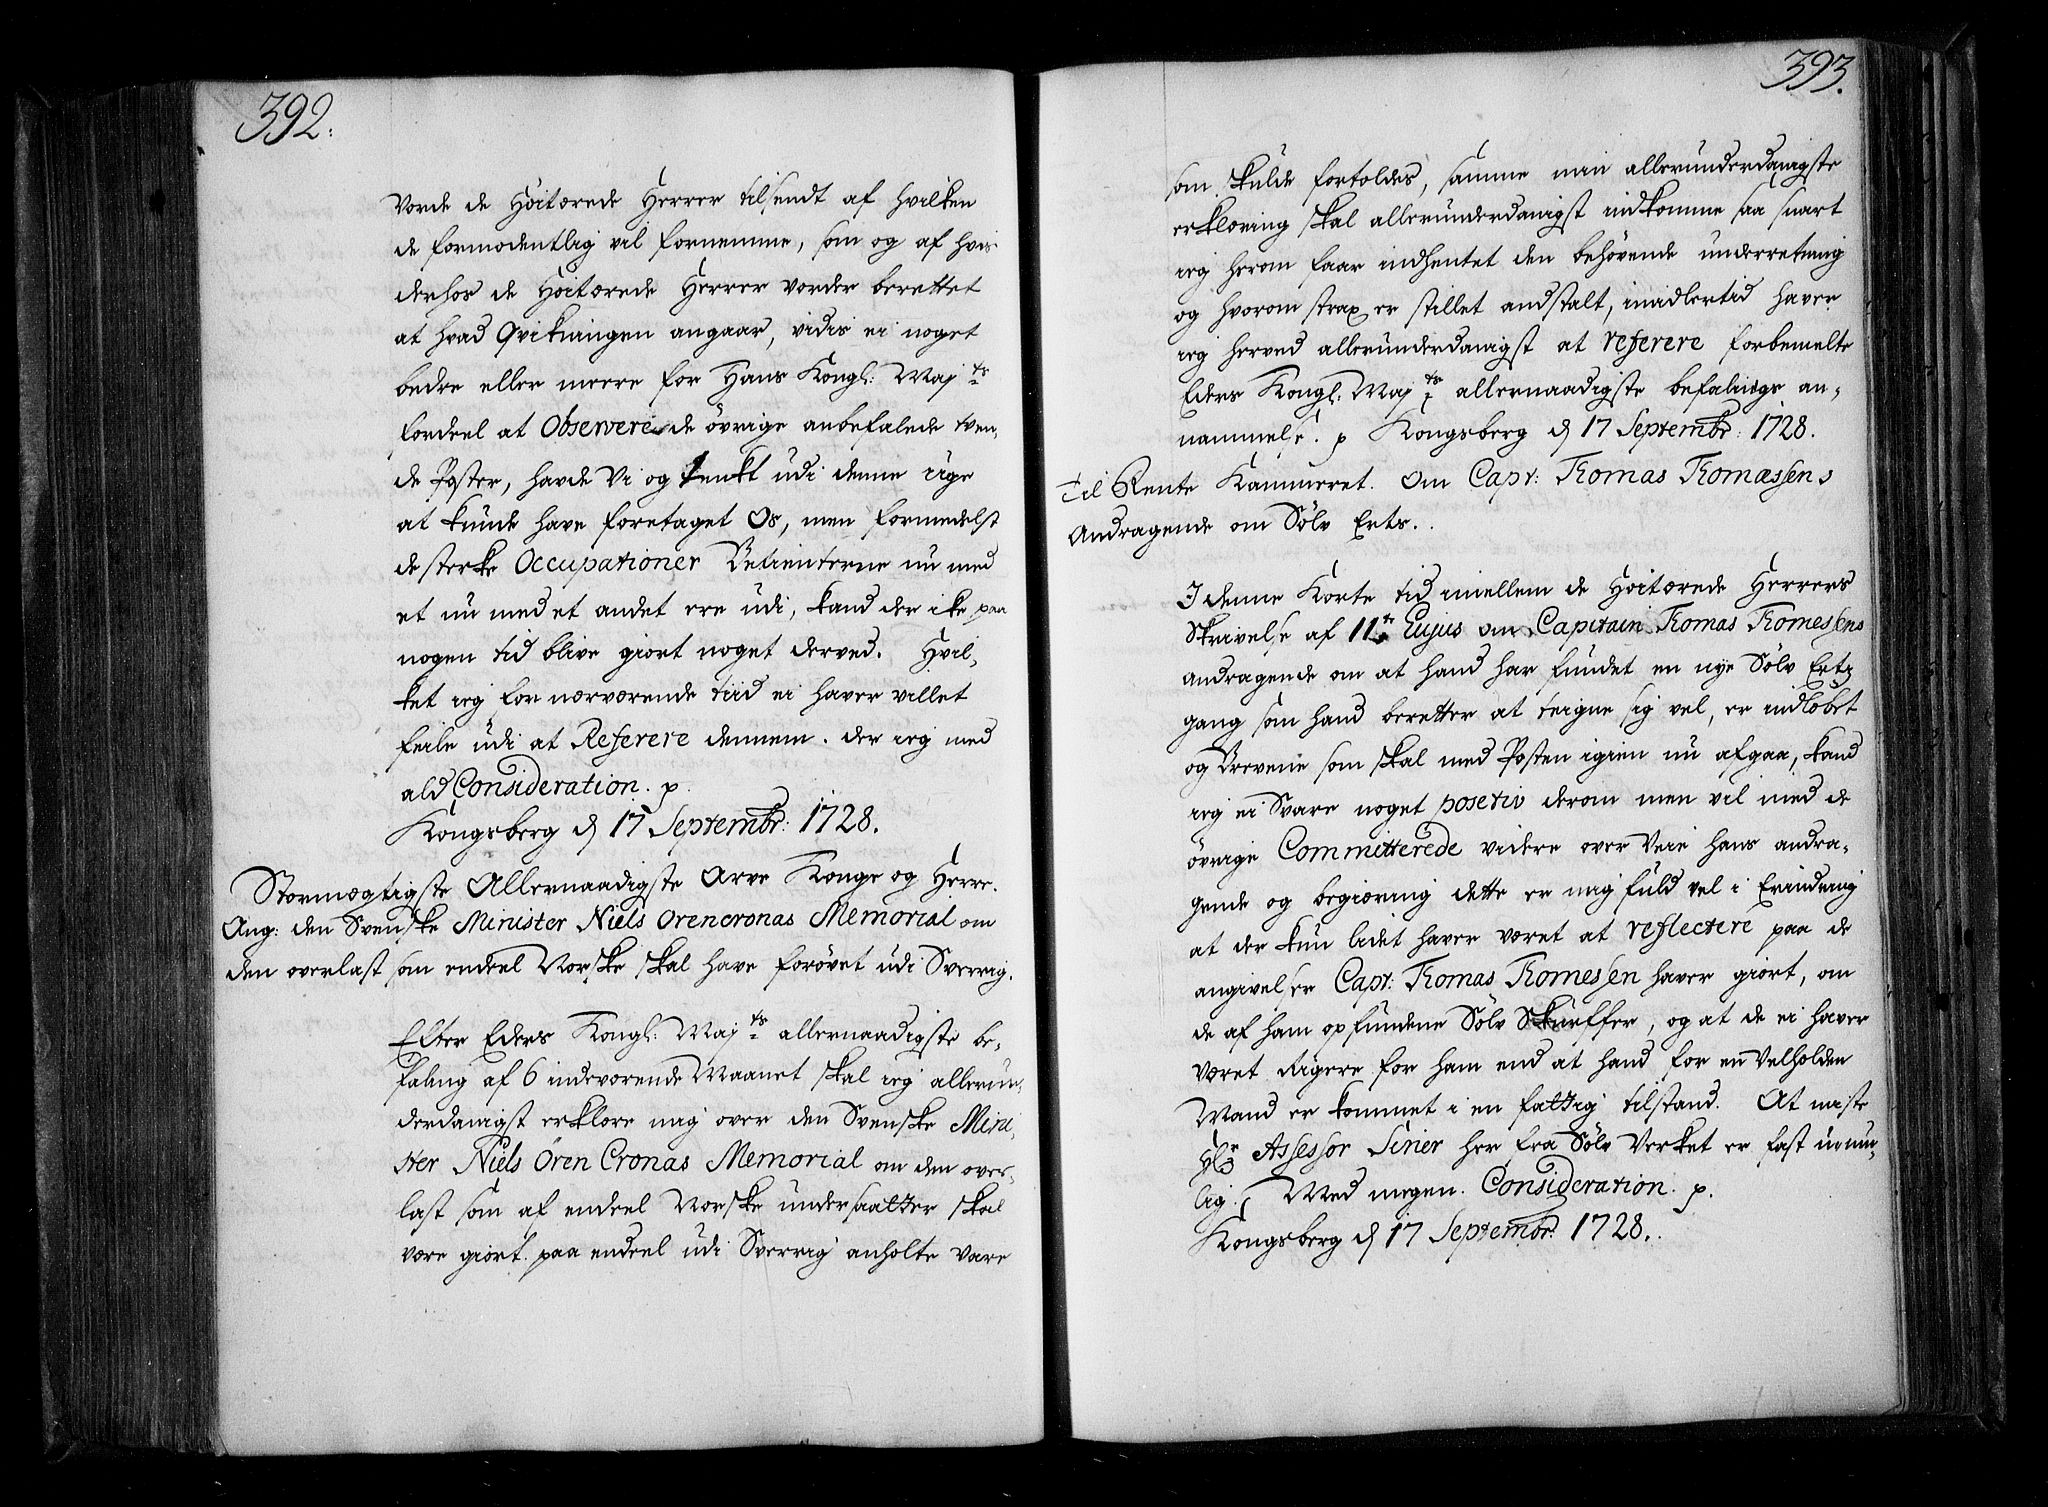 392.
Vorde de Höitærede Herrer tilsendt af hvilken
de formodentlig vil fornemme, som og af hvis
derhos de Höitærede Herrer vorder berettet
at hvad Qvikningen angaar, vidis ei noget
bedre eller meere for Hans Kongl: Maj:ts
fordeel at Observere de övrige anbefalede tven-
de Poster, havde Vi og tenkt udi denne uge
at kunde have foretaget Os, men formedelst
de sterke Occupationer Betienterne nu med
et nu med et andet ere udi, kand der ike paa
nogen tid blive giort noget derved. Hvil-
ket ieg for nærværende tiid ei haver villet
feile udi at Referere dennem. der ieg med
ald Consideration. p.
Kongsberg d 17 Septembr: 1728.
Stormægtigste Allernaadigste Arve Konge og Herre.
Ang: den Svenske Minister Niels Orencronas Memorial om
den overlast som endeel Norske skal have forövet udi Sverrig.
Efter Eders Kongl: Maj:ts allernaadigste be-
faling af 6 indeværende Maanet skal ieg allerun-
derdanigst erklære mig over den Svenske Mini-
ster Niels Ören Cronas Memorial om den over-
last som af endeel Norske undersaatter skal
være giort paa endeel udi Sverrig anholte Vare
393.
som skulde fortoldes, samme min allerunderdanigste
erklæring skal allerunderdanigst indkomme saa snart
ieg herom faar indhentet den behövende underretning
og hvorom strax er stillet andstalt, imidlertid haver
ieg herved allerunderdanigst at referere forbemelte
Eders Kongl: Maj:ts allernaadigste befalings an-
nammelse. p Kongsberg d 17 Septembr: 1728.
til Rente Kammeret. Om Capt: Tomas Tomæssens
Andragende om Sölv Erts.
I denne Korte tid imellem de Höitærede Herrers
Skrivelse af 11te Eujus om Capitain Tomas Tomessens
andragende om at hand har fundet en nye Sölv Ertz
gang som hand beretter at teigne sig vel, er indlöbet
og Brevene som skal med Posten igien nu afgaa, kand
ieg ei Svare noget posetiv derom men vil med de
övrige Committerede videre over Veie hans andra-
gende og begiæring dette er mig fuld vel i Erindring
at der kun lidet haver været at reflectere paa de
angivelser Capt: Tomas Tomessen haver giort, om
de af ham opfundene Sölv Skurffer, og at de ei haver
været Rigere for ham end at hand for en Velholden
Mand er kommet i en fattig tilstand. At miste
Hr Assessor Sinier her fra Sölv Verket er fast umue-
lig. Med megen. Consideration. p.
Kongsberg d 17 Septembr: 1728.